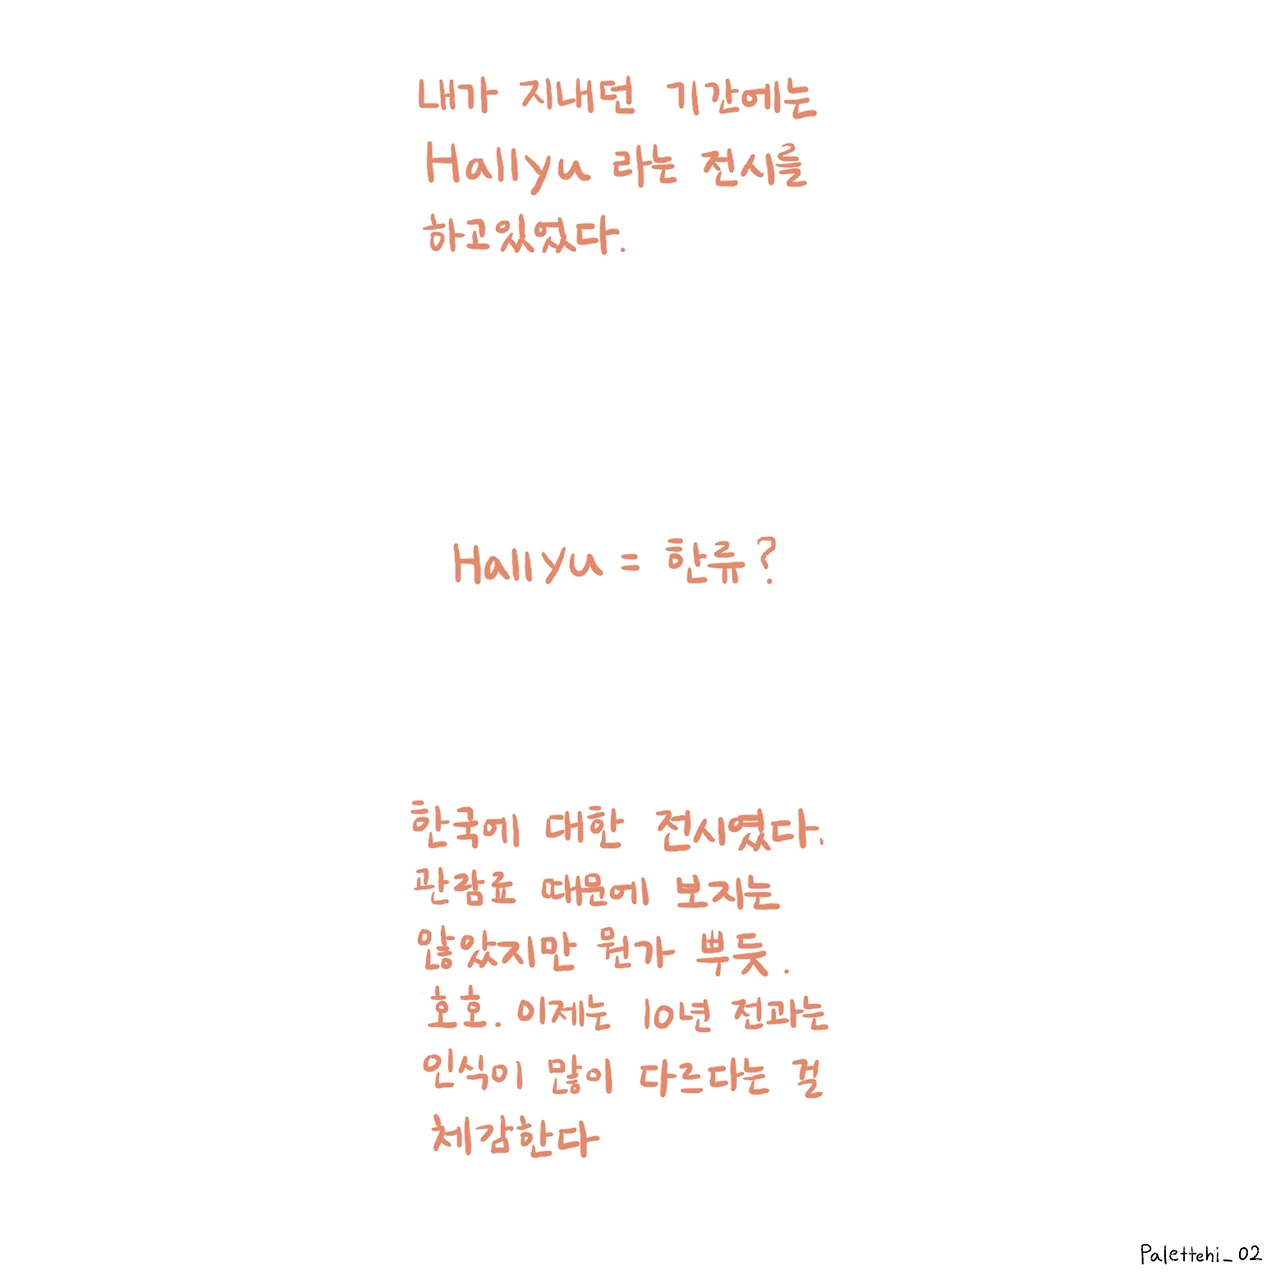 내가 지내던 기간에는
Hallyu 라는 전시를
하고있었다.
Hallyu = 한류?
한국에 대한 전시였다.
관람료 때문에 보지는
않았지만 뭔가 뿌듯.
호호. 이제는 10년 전과는
인식이 많이 다르다는 걸
체감한다
Palettehi_02